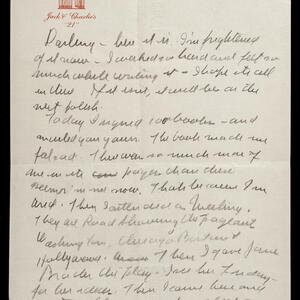 Jack & Charlie's
"21"
Darling – here it is. I'm frightened
of it now – I worked so hard and felt so
much while writing it – I hope its all
in there. If it isn't, it will be in the
next polish.
Today I signed 100 books – and
mailed you yours. The book made me
feel sad. There was so much more of
me in its pages than there
seems in me now. Thats because I'm
tired. Then I attended a Meeting.
They are Road Showing the Pageant
Washington, Chicago Boston &
Hollywood. Then I gave Jane
the Play. I see her Friday –
for her ideas. Then I came here and